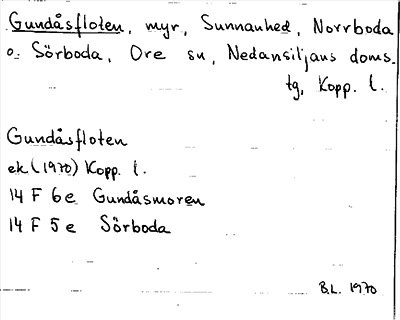 Gundåsfloten, myr, Sunnanhed, Norrboda
o. Sörboda, Ore sn, Nedansiljans doms.
tg, Kopp. l.
Gundåsfloten
ek (1970) Kopp. l.
14 F 6 e Gundåsmoren
14 F 5 e Sörboda
B.L. 1970